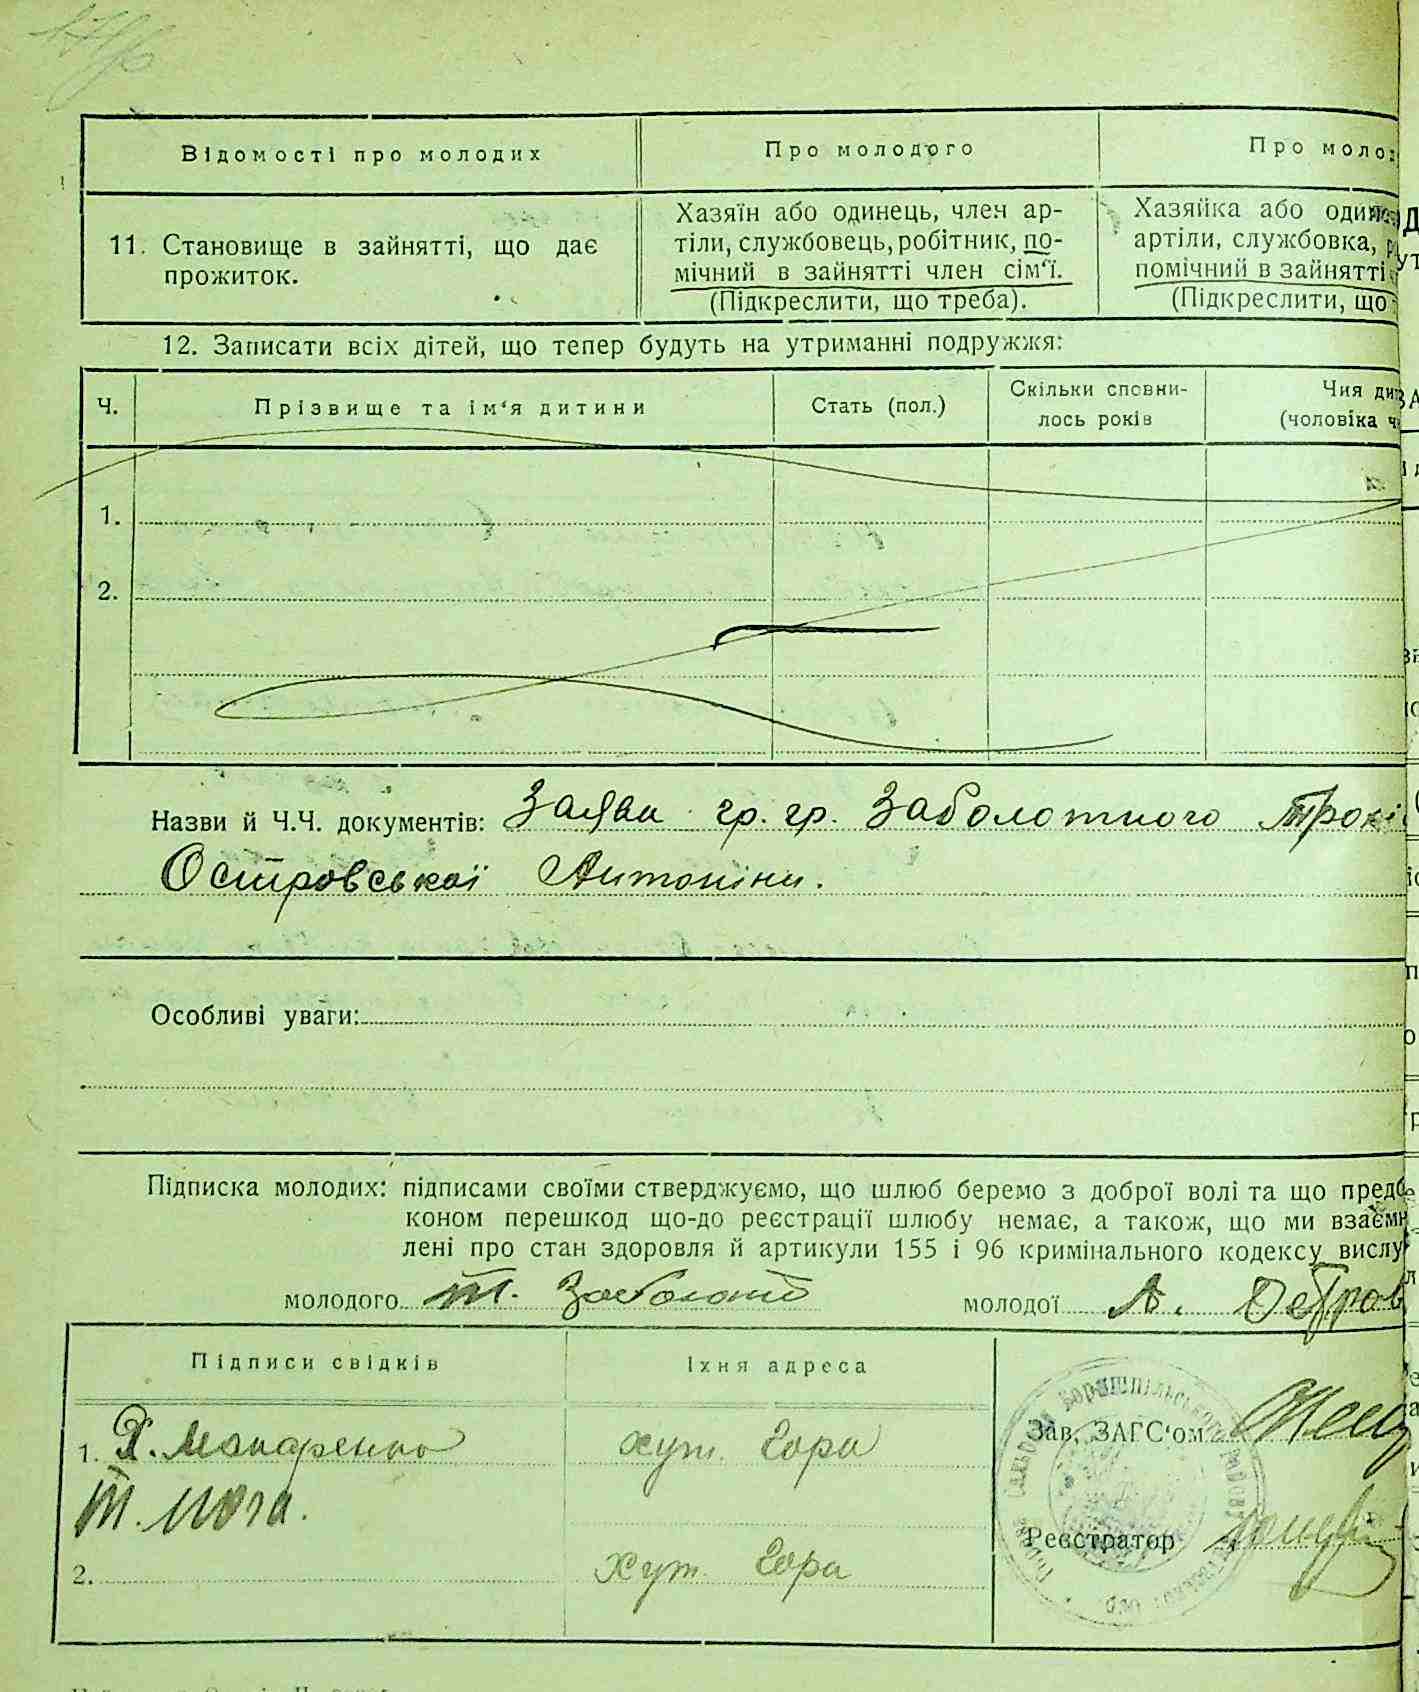 Відомості про молодих
Про молодого
Про моло
11. Становище в зайнятті, що дає
прожиток.
Хазяїн або одинець, член ар-
тіли, службовець, робітник, по-
мічний в зайнятті член сім'ї.
(Підкреслити, що треба).
Хазяйка або один
артіли, службовка,
помічний в зайнятті
(Підкреслити, що
12. Записати всіх дітей, що тепер будуть на утриманні подружжя:
Ч.
Прізвище та ім'я дитини
Стать (пол.)
Скільки сповни-
лось років
Чия ди
(чоловіка ч
1.
2.
Назви й Ч.Ч. документів: Заяви гр. гр. Заболотного
Островської Антоніни.
Особливі уваги:
Підписка молодих: підписами своїми стверджуємо, що шлюб беремо з доброї волі та що предб
коном перешкод що-до реєстрації шлюбу немає, а також, що ми взаємн
лені про стан здоров'я й артикули 155 і 96 кримінального кодексу вислу
молодого Т. Заболот
молодої А. Остров
Підписи свідків
Їхня адреса
1. Х. Макаренко
хут. Гора
Т. Мога.
2.
Хут. Гора
Зав. ЗАГС'ом
Реєстратор
Бориспільського району